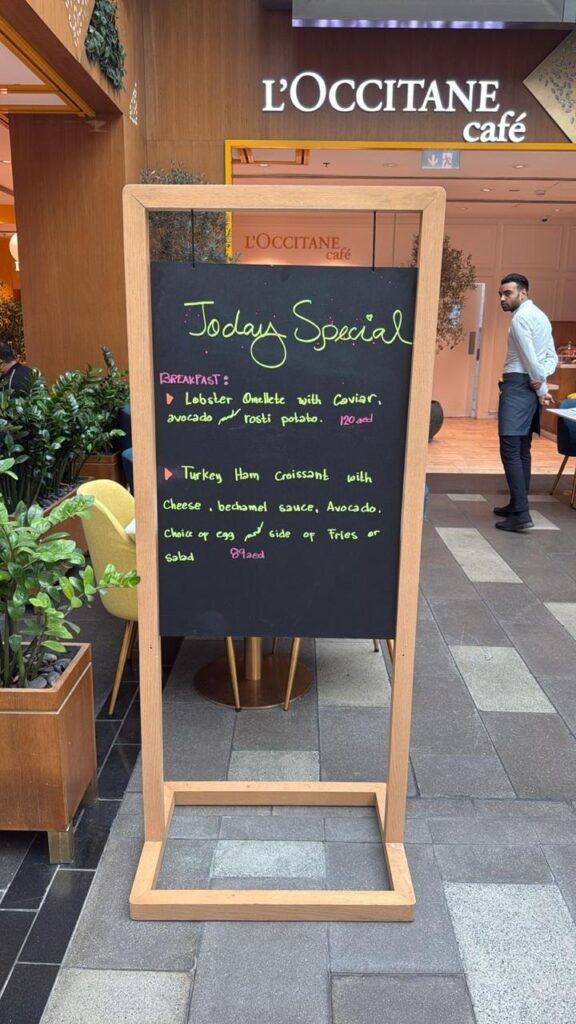 L'OCCITANE
café
L'OCCITANE
café
Today Special
BREAKFAST:
Lobster Omellete with Caviar,
avocado and rosti potato. 120aed
Turkey Ham Croissant with
Cheese, bechamel sauce, Avocado.
Choice of egg and side of Fries or
salad 89aed